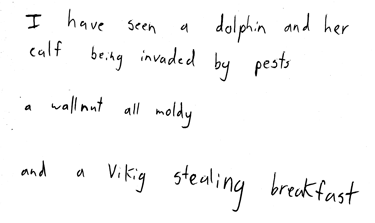 I have seen a dolphin and her
calf being invaded by pests
a wallnut all moldy
and a Vikig stealing breakfast